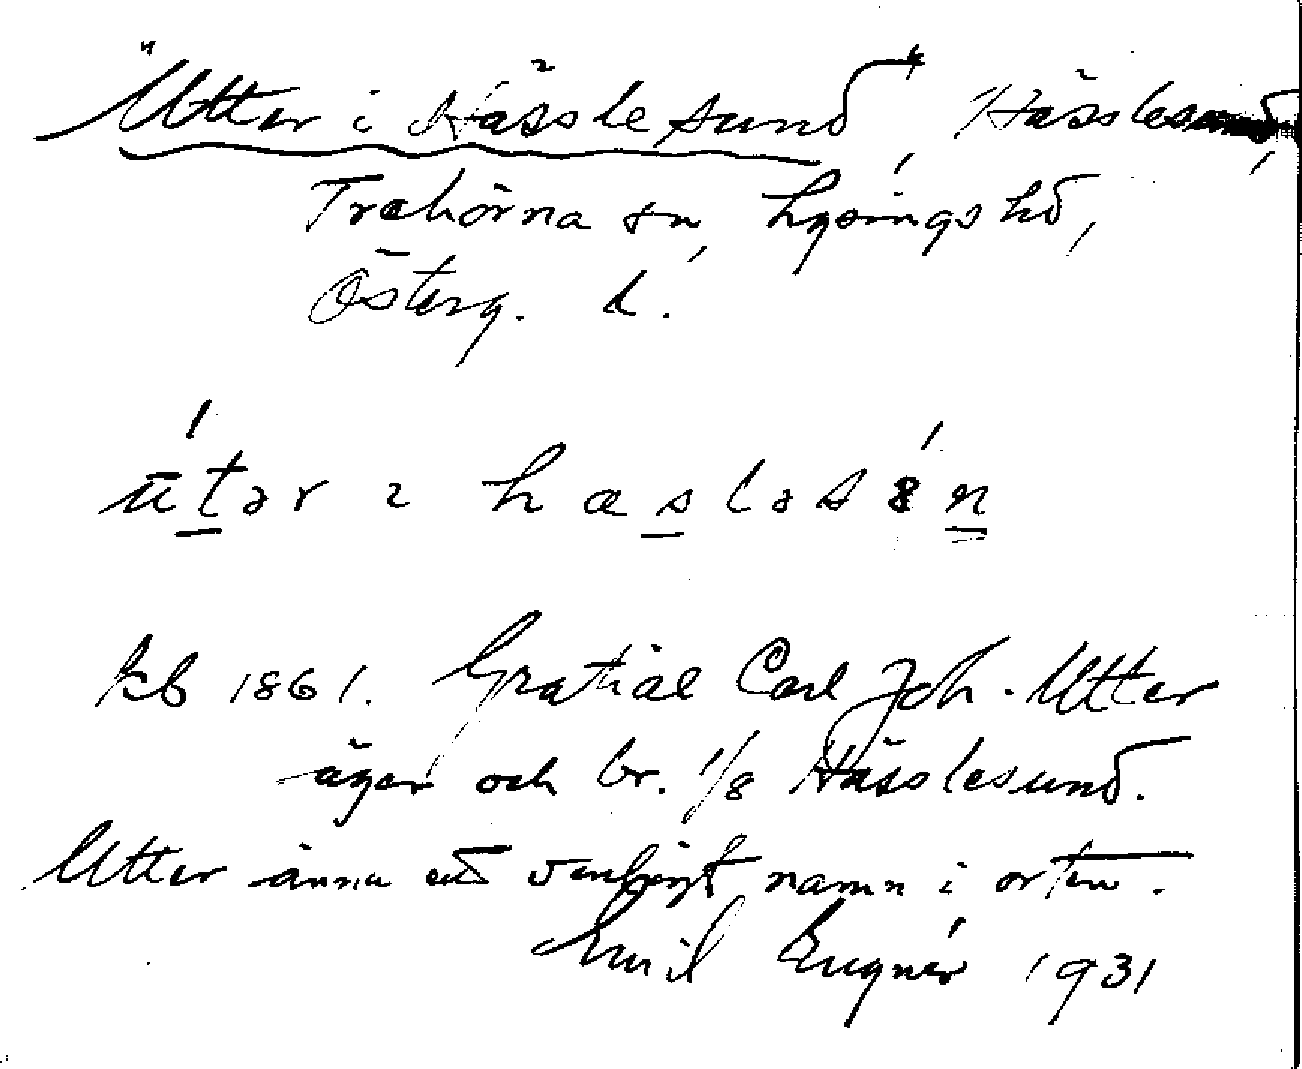 "Utter i Hässlesund" Hässlesund,
Trehörna sn, Lysings hd,
Österg. l.
útər ɪ hasləsón
kb 1861. Gratial Carl Joh. Utter
äger och br. 1/8 Hässlesund.
Utter ännu ett vanligt namn i orten.
Emil Eugnér 1931